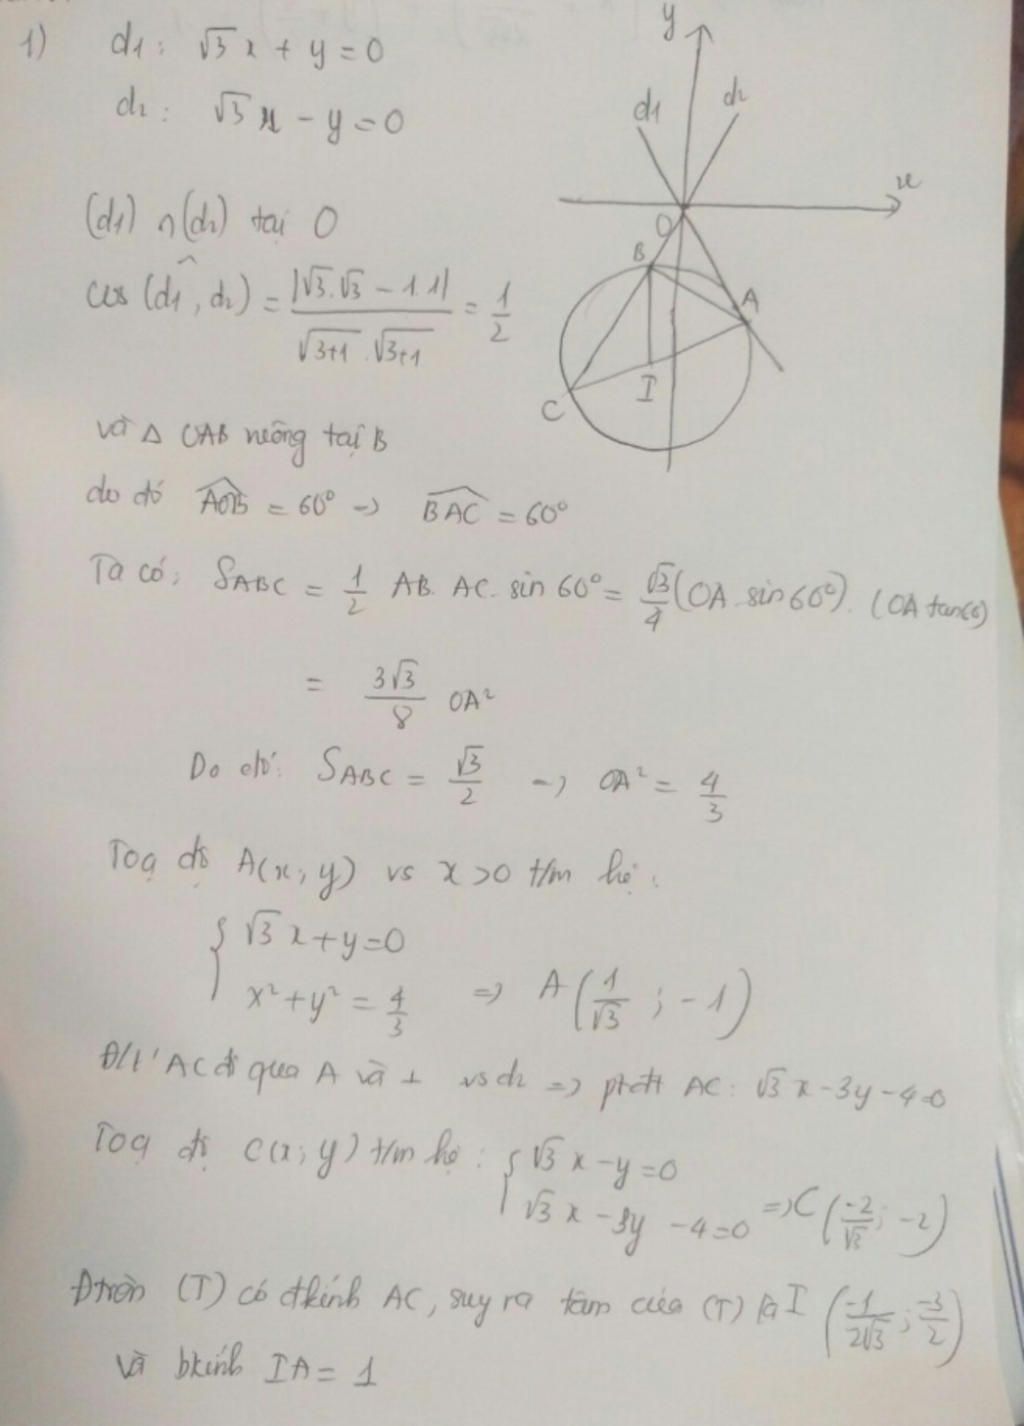 1) d1: √3 x + y = 0
d2: √3 x - y = 0
(d1) ∩ (d2) tại O
cos (d1, d2) = |√3.√3 - 1.1| / (√3+1 . √3+1) = 1/2
và Δ OAB vuông tại B
do đó AOB = 60° → BAC = 60°
Ta có: SABC = 1/2 AB. AC. sin 60° = √3/4 (OA sin60°). (OA tan60)
= 3√3/8 OA²
Do đó: SABC = √3/2 → OA² = 4/3
Toạ độ A(x; y) vs x > 0 t/m hệ:
{ √3 x + y = 0
x² + y² = 4/3 ⇒ A (1/√3 ; -1)
Đ/t' AC đi qua A và ⊥ vs d2 ⇒ ptđt AC: √3 x - 3y - 4 = 0
Toạ độ C(x; y) t/m hệ: { √3 x - y = 0
√3 x - 3y - 4 = 0 ⇒ C (-2/√3; -2)
Đtròn (T) có đkính AC, suy ra tâm của (T) là I (-1/2√3; -3/2)
và bkính IA = 1
y
d1
d2
x
O
B
A
I
C